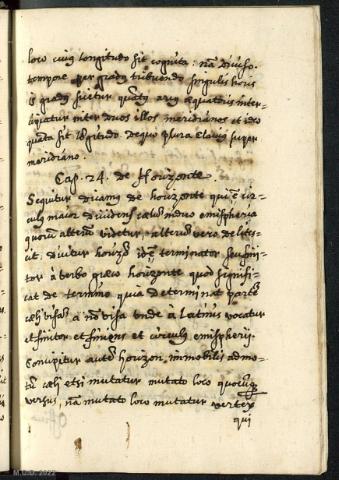 loco cuius longitudo sit cognita: nā diviso
tempore per gradus tribuendo singulis horis
15 gradus scietur quātus arcus æquatoris inter-
cipiatur inter duos illos meridianos et ideo
quāta sit lōgitudo. de quo plura Clavius super
meridiano.
Cap. 24. de Horizonte
Sequitur dicamus de horizonte qui ē cir-
culus maior dividens cælum in duo emispheria
quorum alterū videtur, alterū vero delites-
cit. dicitur horizō idē terminator seu fini-
tor à verbo græco horizonte quod signifi-
cat de termino quia determinat partē
cæli visā a nō visa unde à Latinis vocatur
et finitor et finiens et circulus emispherii.
Concipitur autē horizon immobilis ad mo-
tū cæli etsi mutatur mutato loco quocūq
versus, nā mutato loco mutatur vertex
qui
M.C.D. 2022